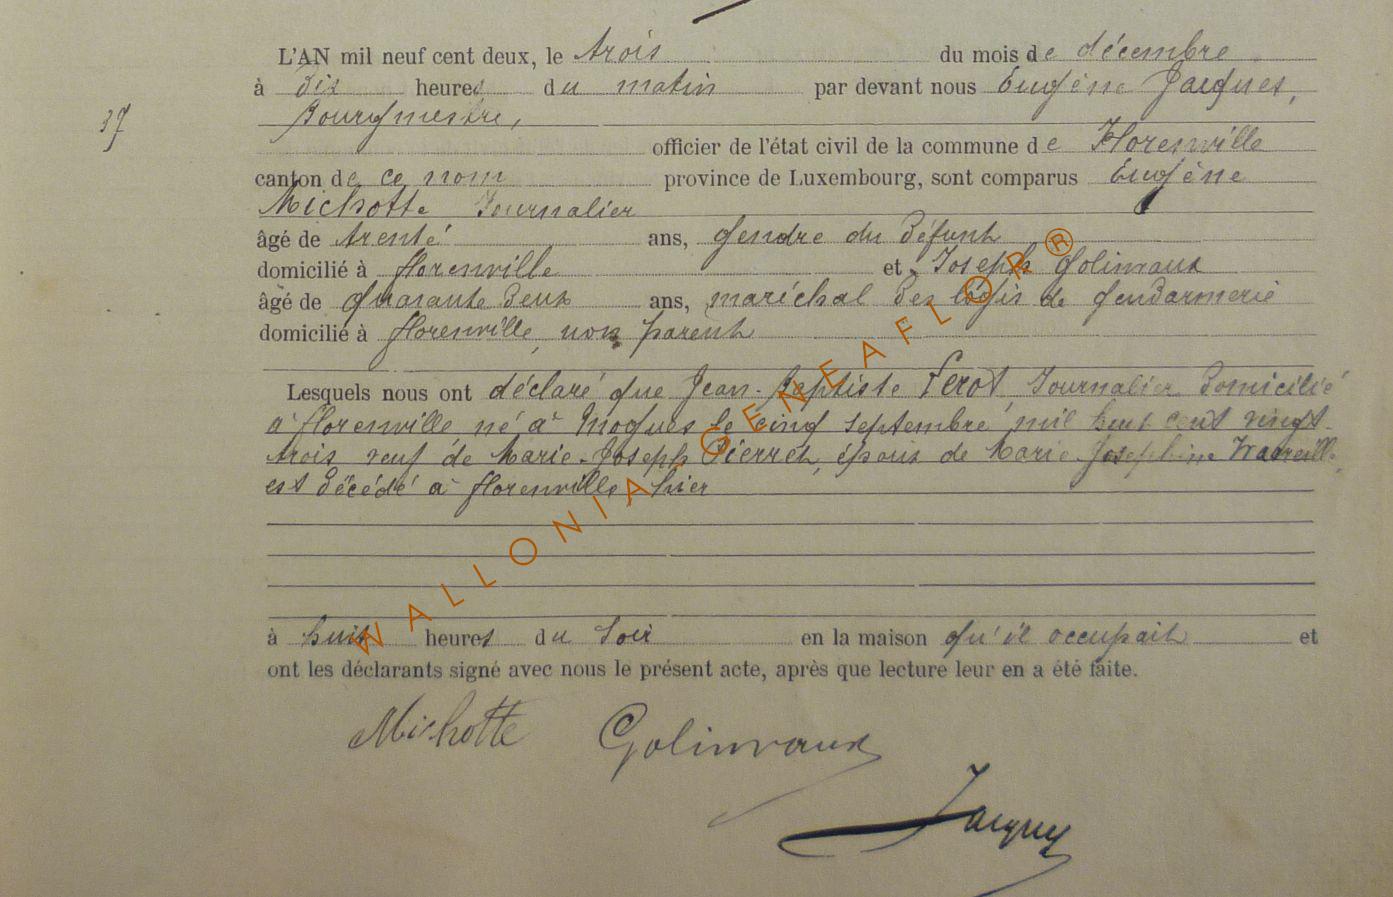 L'AN mil neuf cent deux, le trois du mois de décembre
à dix heures du matin par devant nous Eugène Jacques,
37
Bourgmestre,
officier de l'état civil de la commune de Florenville
canton de ce nom province de Luxembourg, sont comparus Eugène
Michotte Journalier
âgé de trente ans, gendre du défunt
domicilié à florenville et Joseph Golinvaux
âgé de quarante deux ans, maréchal des logis de gendarmerie
domicilié à florenville, non parent
Lesquels nous ont déclaré que Jean-Baptiste Perot Journalier domicilié
à florenville né à Mogues le cinq septembre mil huit cent vingt-
trois veuf de Marie-Joseph Pierret, époux de Marie Josephine
est décédé à florenville hier
à huit heures du soir en la maison qu'il occupait et
ont les déclarants signé avec nous le présent acte, après que lecture leur en a été faite.
Michotte Golinvaux
Jacques
WALLONIA-GENEAFLOR®